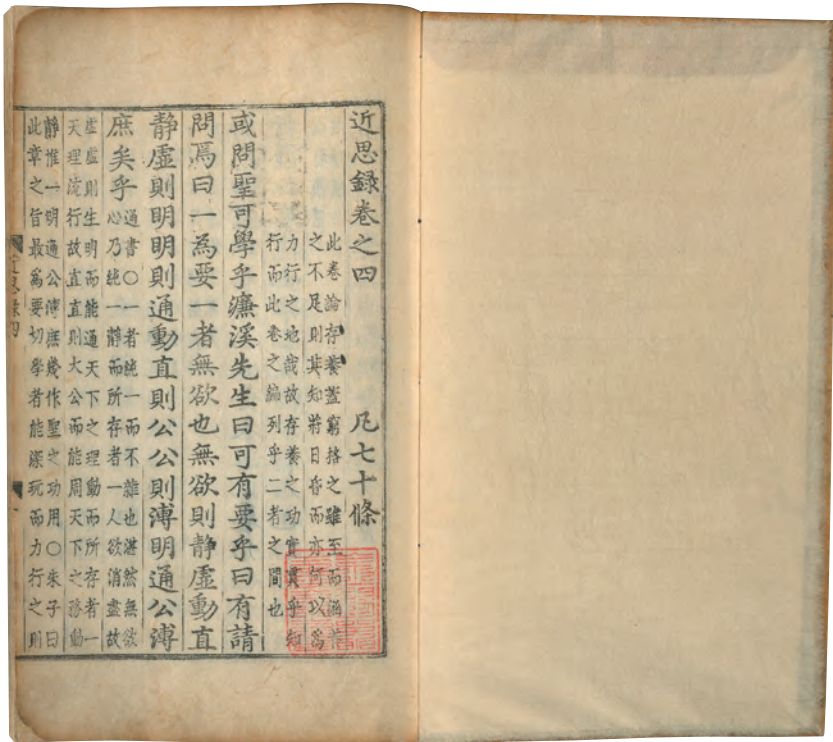 近思錄卷之四 凡七十條
此卷論存養蓋窮格之雖至而涵養
之不足則其知將日昏而亦何以爲
力行之地哉故存養之功實貫乎知
行而此卷之編列乎二者之間也
或問聖可學乎濂溪先生曰可有要乎曰有請
問焉曰一為要一者無欲也無欲則静虛動直
静虛則明明則通動直則公公則溥明通公溥
庶矣乎
通書〇一者純一而不雜也湛然無欲
心乃純一静而所存者一人欲消盡故
虛虛則生明而能通天下之理動而所存者一
天理流行故直直則大公而能周天下之務動
静惟一明通公溥庶幾作聖之功用〇朱子曰
此章之旨最爲要切學者能深玩而力行之則
近思錄四